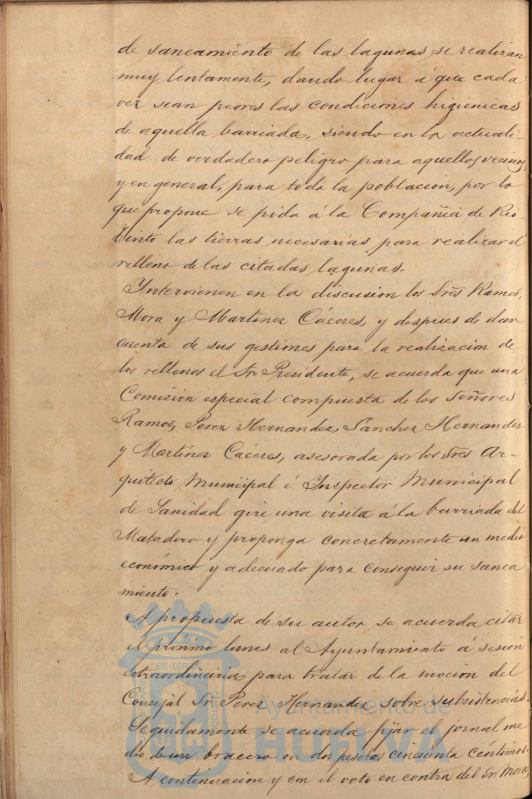 de saneamiento de las lagunas se realizan
muy lentamente, dando lugar á que cada
vez sean peores las condiciones higienicas
de aquella barriada, siendo en la actuali-
dad de verdadero peligro para aquellos vecinos,
y en general, para toda la poblacion, por lo
que propone se pida á la Compañia de Rio
Tinto las tierras necesarias para realizar el
relleno de las citadas lagunas.
Intervienen en la discusion los Sres Ramos,
Mora y Martinez Cáceres, y despues de dar
cuenta de sus gestiones para la realizacion de
los rellenos el Sr. Presidente, se acuerda que una
Comisión especial compuesta de los Señores
Ramos, Perez Hernandez, Sanchez Hernandez
y Martinez Cáceres, asesorada por los Sres Ar-
quitecto Municipal é Inspector Municipal
de Sanidad gire una visita á la barriada del
Matadero y proponga concretamente un medio
económico y adecuado para conseguir su sanea
miento.
A propuesta de su autor se acuerda citar
el próximo lunes al Ayuntamiento á sesion
extraordinaria para tratar de la mocion del
Concejal Sr. Perez Hernandez sobre subsistencias.
Seguidamente se acuerda fijar el jornal me
dio de un bracero en dos pesetas cincuenta centimos.
A continuacion y con el voto en contra del Sr. Mora,
Ayuntamiento de
HUELVA